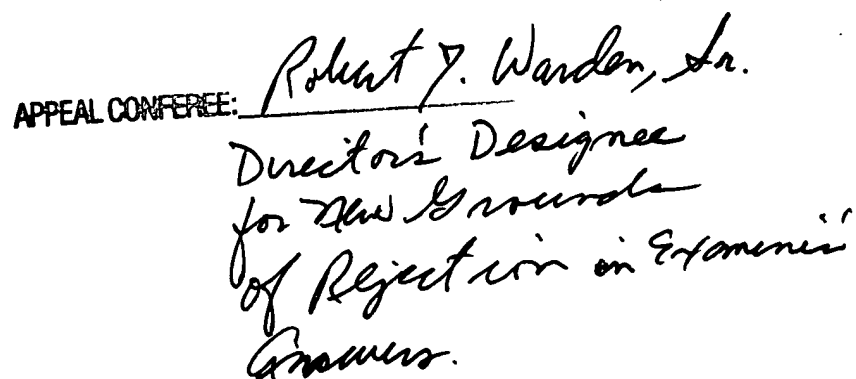 APPEAL CONFEREE: Robert J. Warden, Sr.
Director's Designee
for New Grounds
of Rejection in Examiners'
Answers.